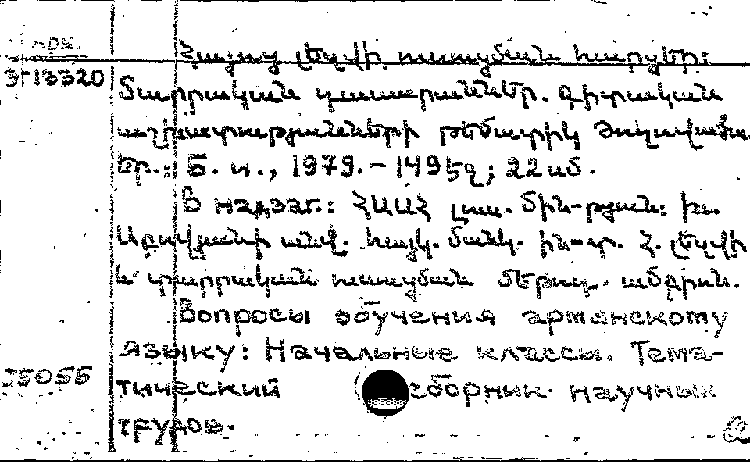 арм.
Հայոց լեզվի ուսուցման հարցեր:
Э-13320 Տարրական դասարաններ. Գիտական
աշխատությունների թեմատիկ ժողովածու
Եր.: Б. и., 1979. – 149 էջ; 22 սմ.
В надзаг.: ՀՍՍՀ լուս. մին-թյան: Խ.
Աբովյանի անվ. հայկ. մանկ. ին-տ. Հ. լեզվի
և տարրական ուսուցման մեթոդ. ամբիոն.
Вопросы обучения армянскому
языку: Начальные классы. Тема-
25055 тический сборник научных
трудов.